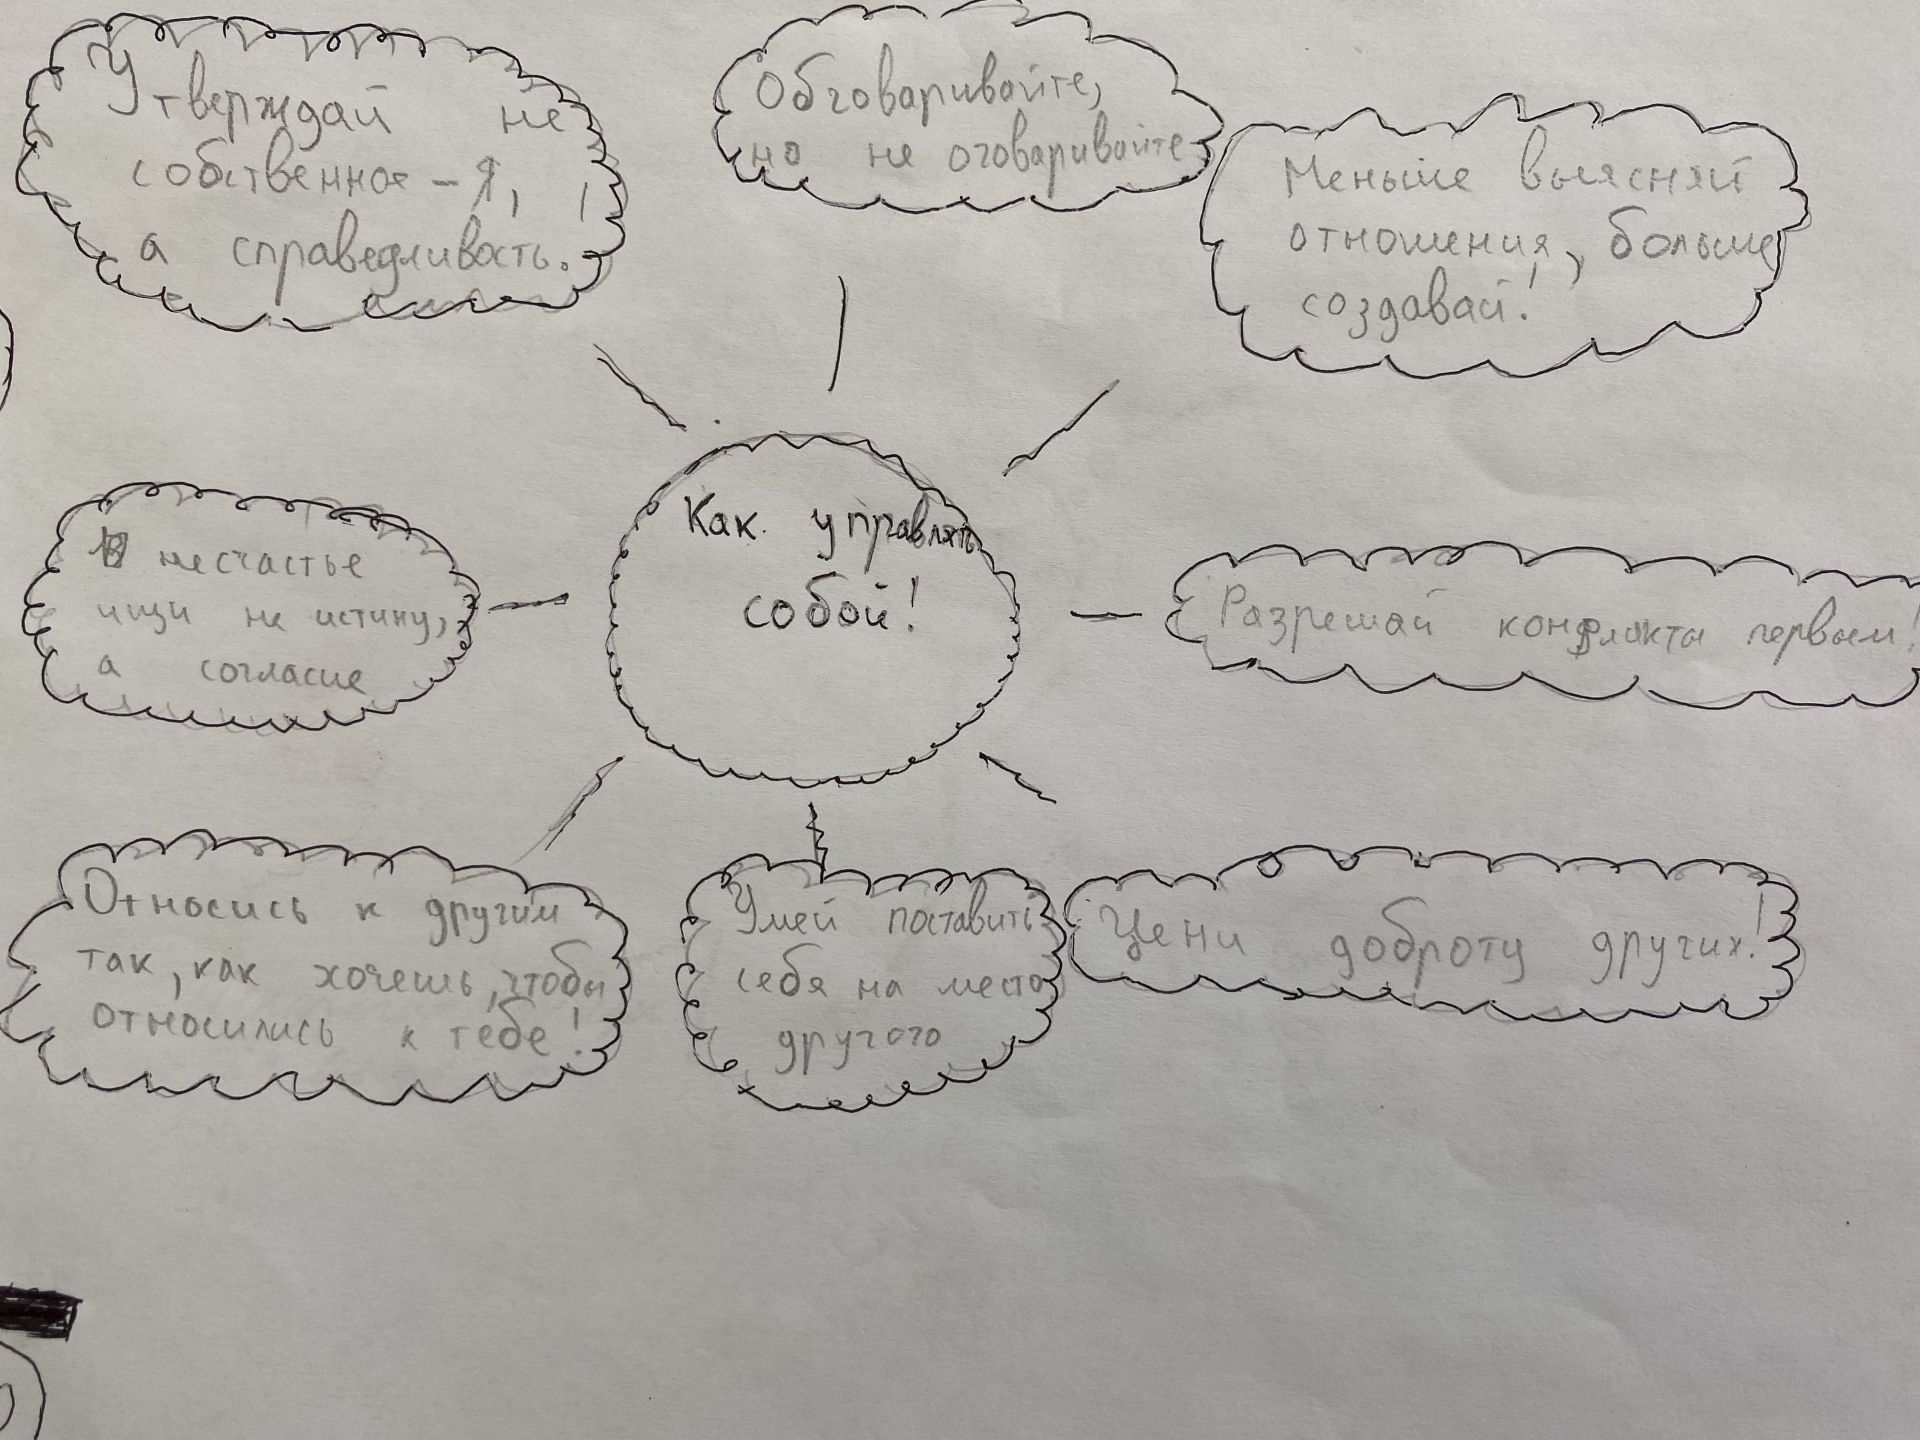 Утверждай не
собственное - Я,
а справедливость.!
Обговаривайте,
но не оговаривайте
Меньше выясняй
отношения, больше
создавай!
Как управлять
собой!
В несчастье
ищи не истину,
а согласие
Разрешай конфликты первым!
Относись к другим
так, как хочешь, чтобы
относились к тебе!
Умей поставить
себя на место
другого
Цени доброту других!